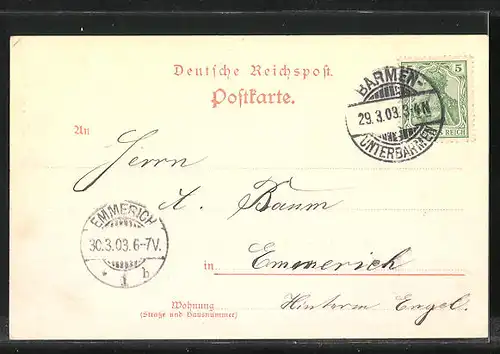 Deutsche Reichspost.
Postkarte.
5
REICH
BARMEN-
29.3.03.3-4N
UNTERBARMEN
An
Herrn
A. Baum
EMMERICH
30.3.03.6-7V.
* b
in Emmerich
Hinterm Engel.
Wohnung
(Straße und Hausnummer)